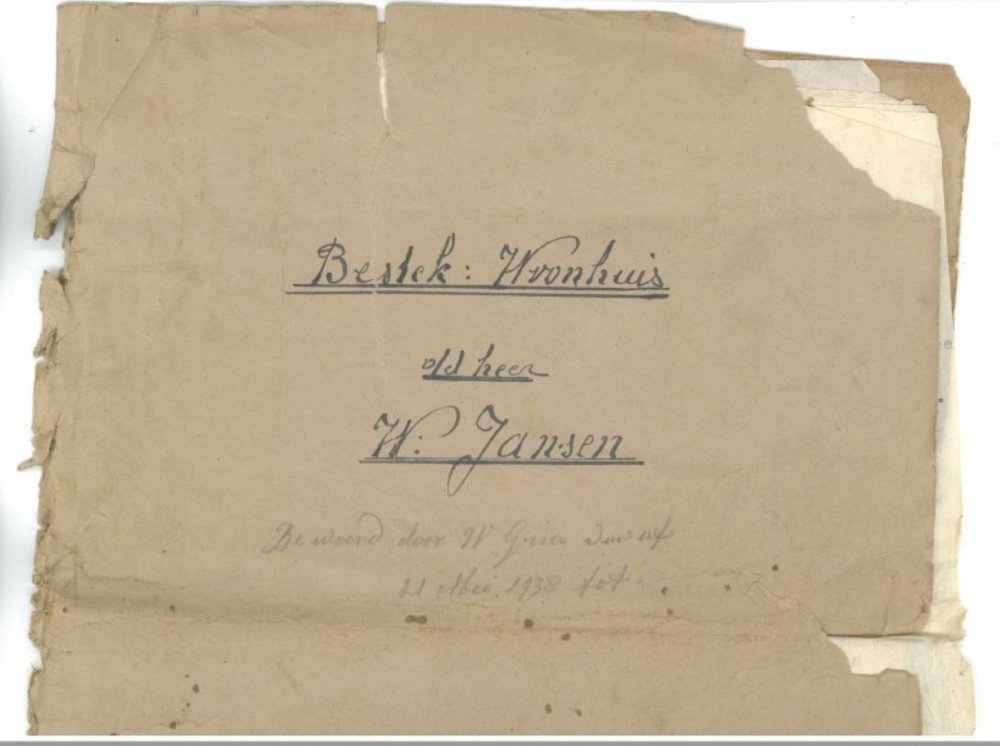 Bestek: Woonhuis
v/d heer
W. Jansen
Bewoond door W vanaf
21 Mei 1938 tot